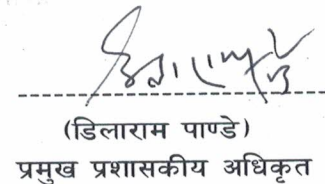 (डिलाराम पाण्डे)
प्रमुख प्रशासकीय अधिकृत